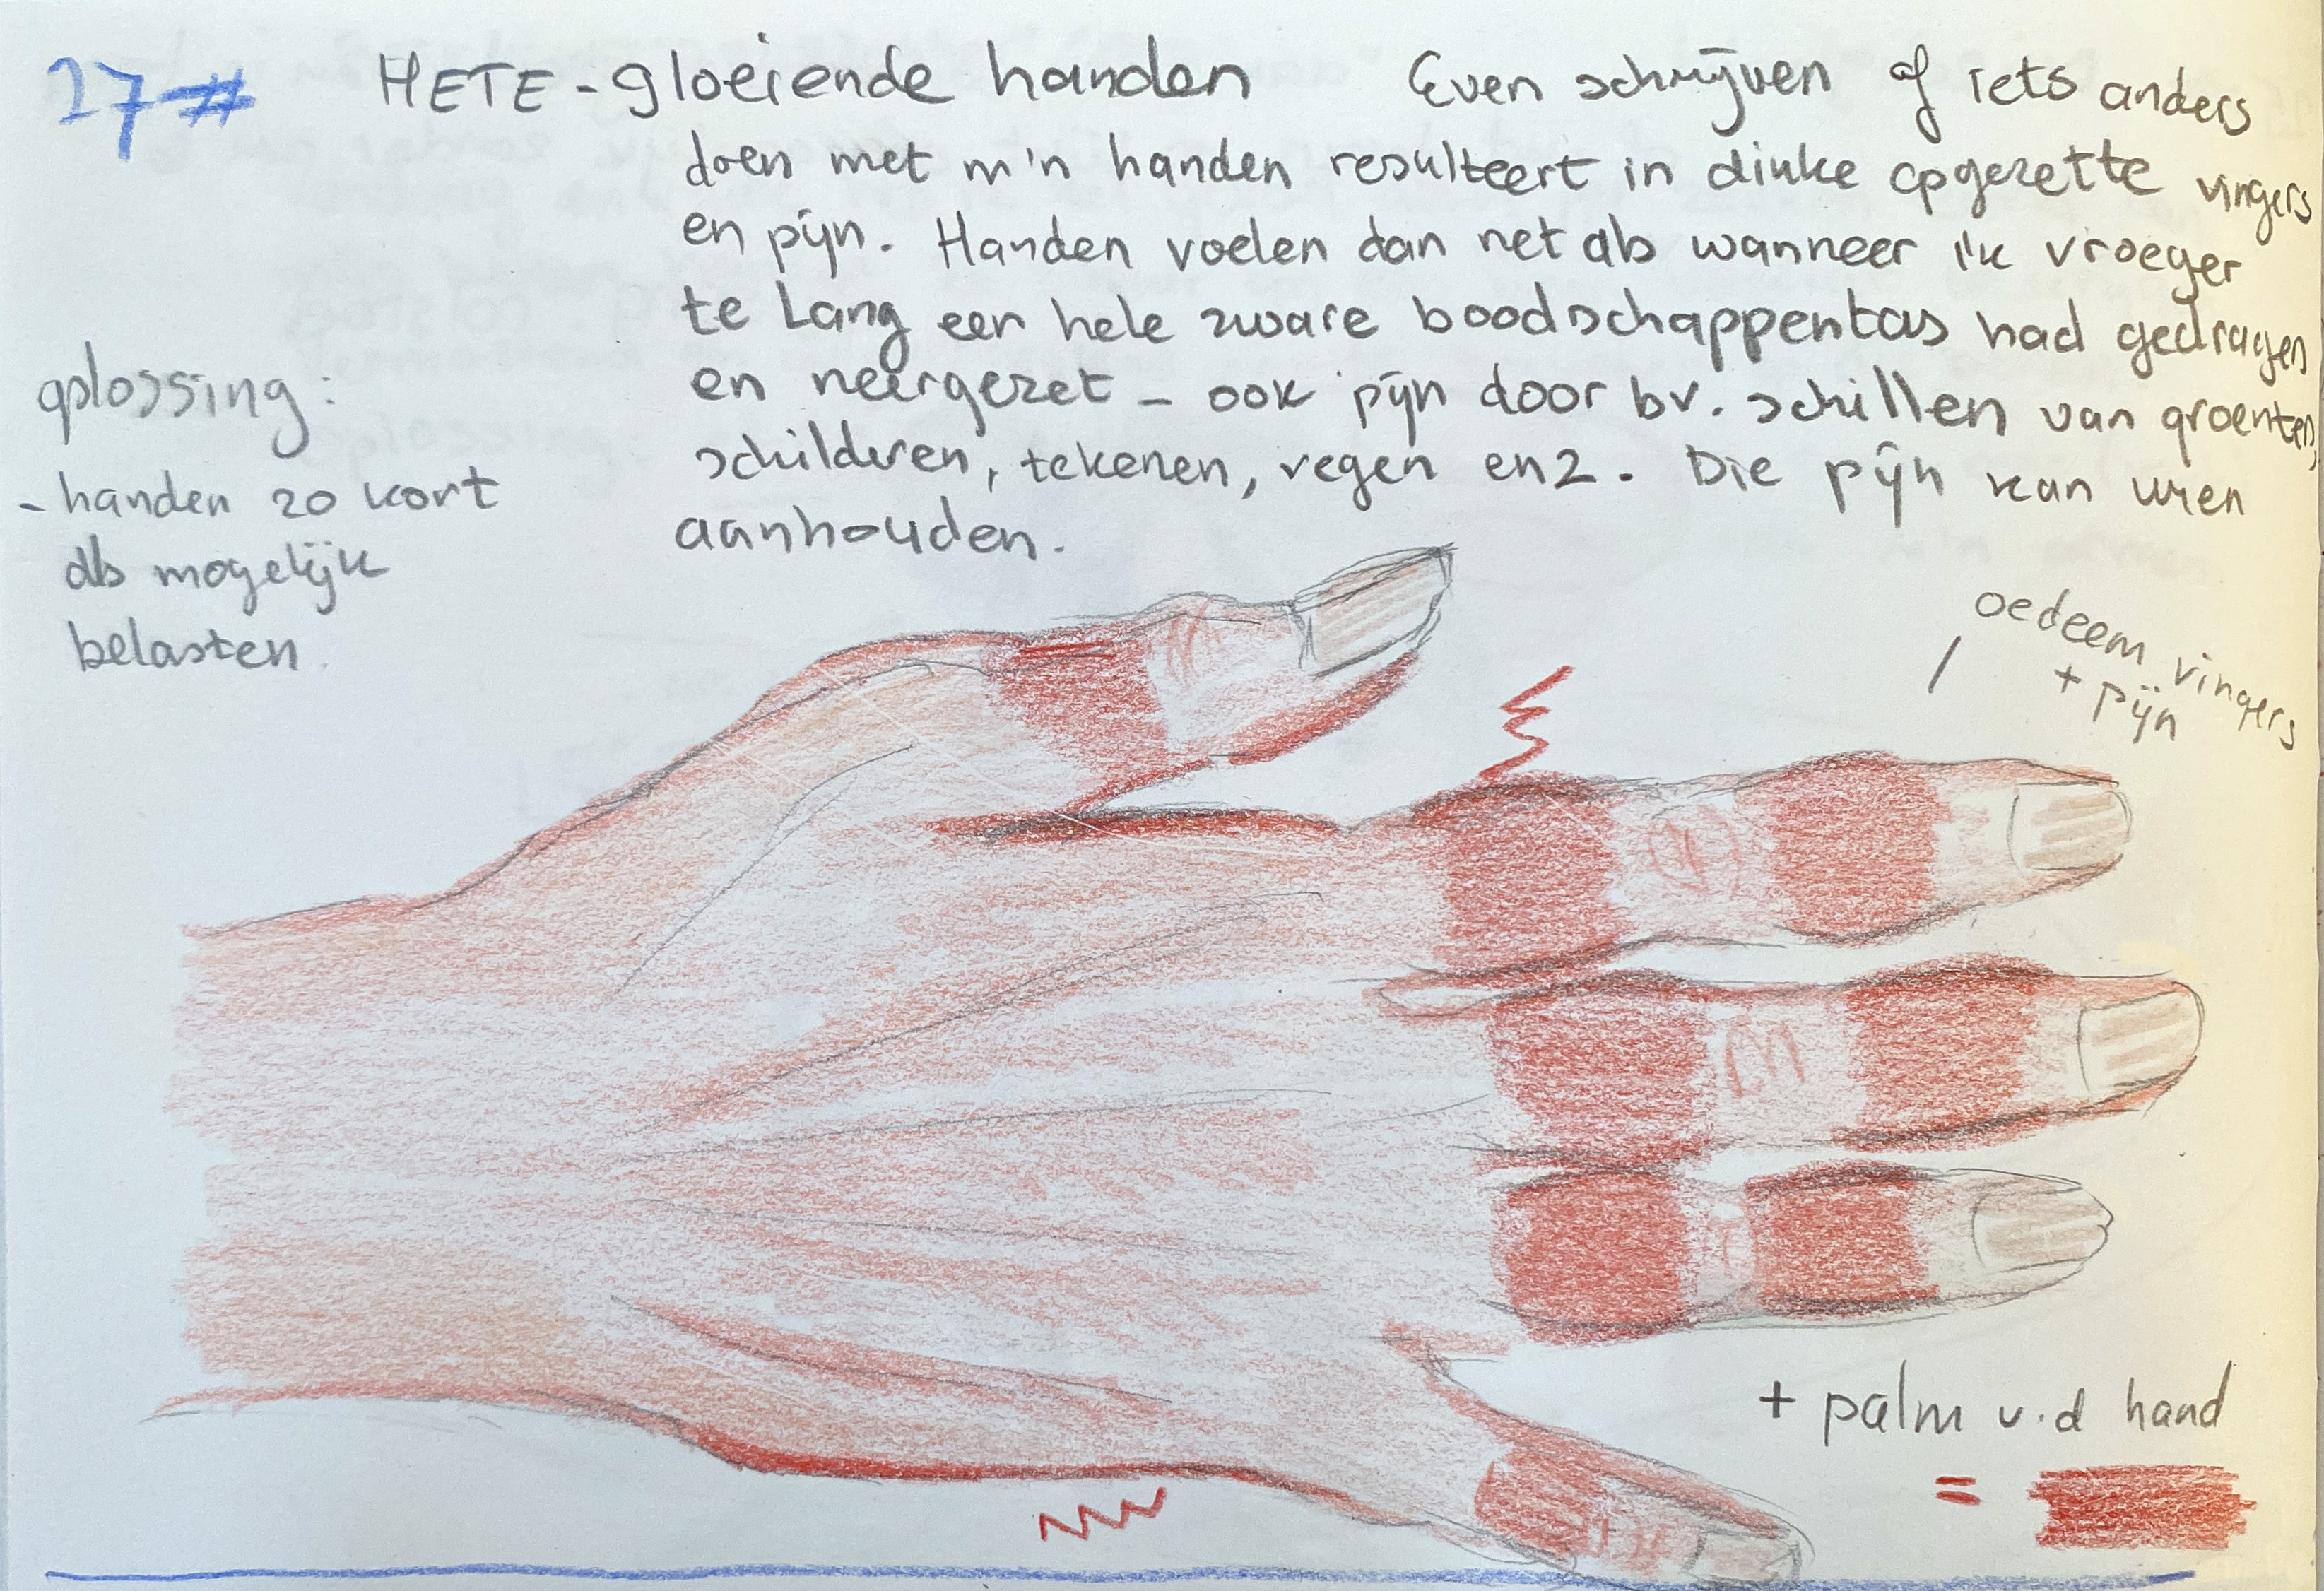 27 #
HETE - gloeiende handen Even schrijven of iets anders
doen met m'n handen resulteert in dikke opgezette vingers
en pijn. Handen voelen dan net als wanneer ik vroeger
te Lang een hele zware boodschappentas had gedragen
en neergezet - ook pijn door bv. schillen van groenten,
schilderen, tekenen, vegen enz. Die pijn kan uren
aanhouden.
oplossing:
- handen zo kort
als mogelijk
belasten.
oedeem vingers
+ pijn
+ palm v.d hand
=